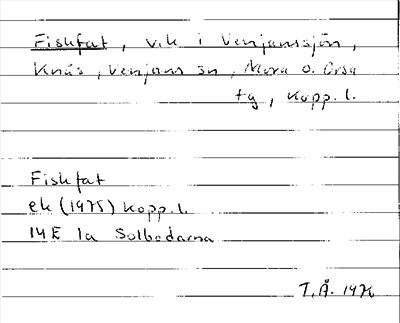 Fiskfat, vik i Venjanssjön,
Knås, Venjans sn, Mora o. Orsa
tg, Kopp. l.
Fiskfat
ek (1975) Kopp. l.
14E 1a Solbodarna
T.Å. 1976